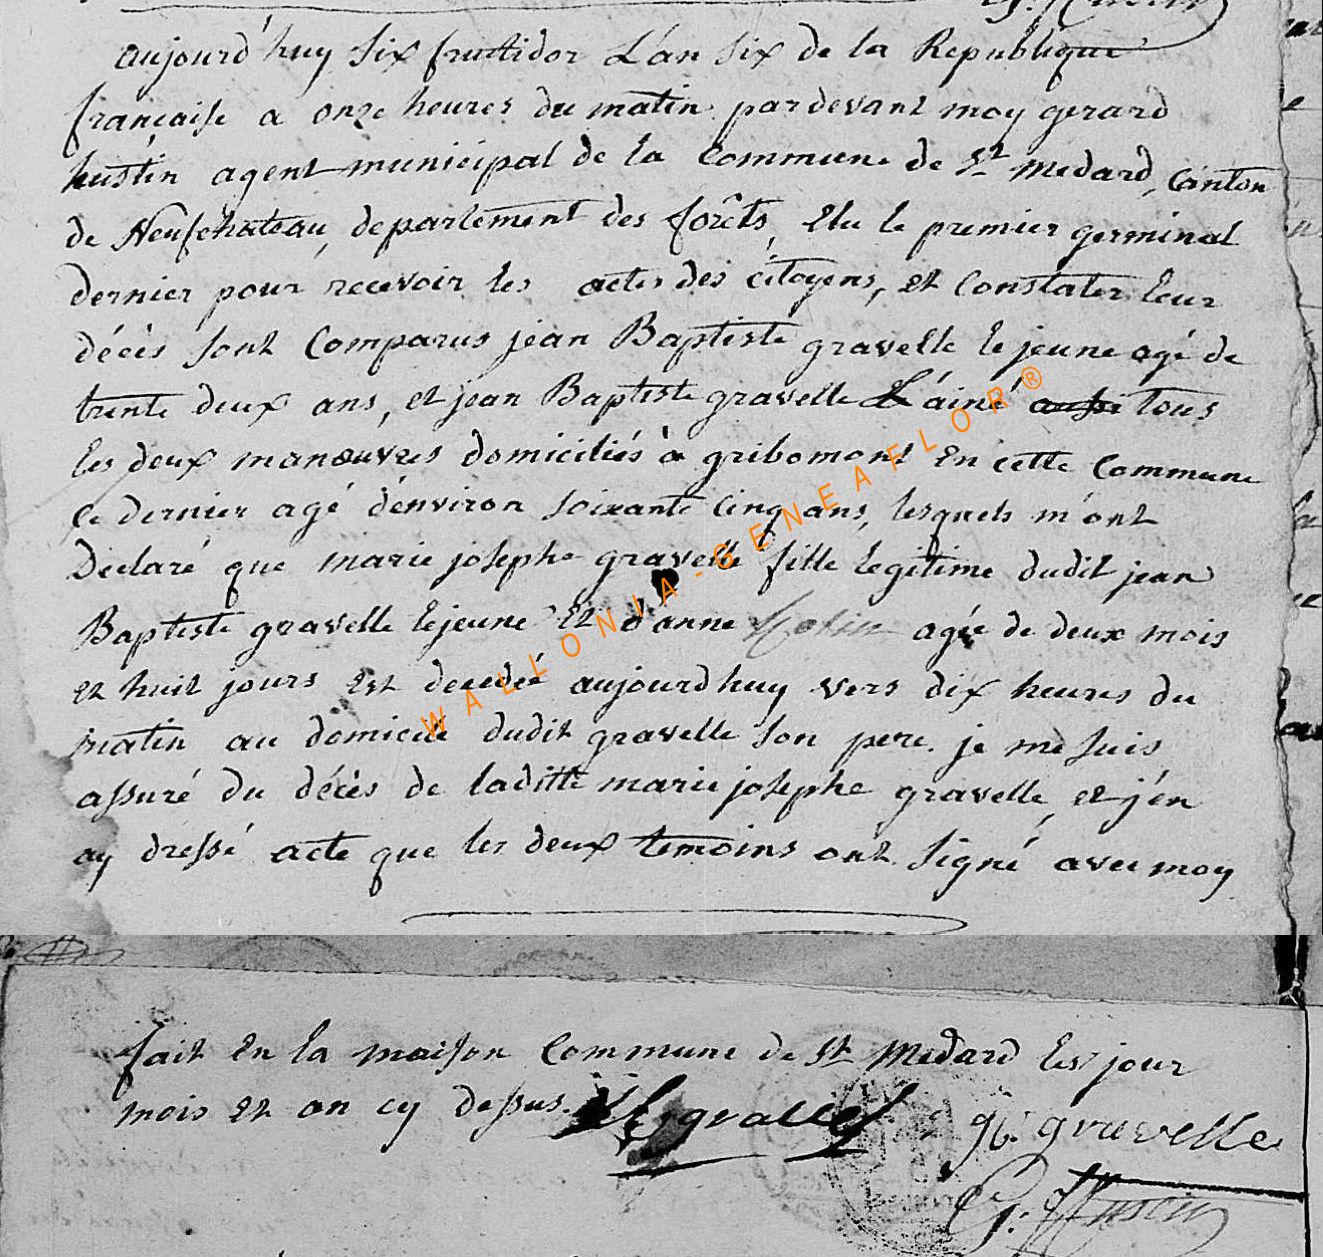 aujourd'huy Six fructidor L'an six de la Republique
francaise a onze heures du matin pardevant moy gerard
hustin agent municipal de la Commune de St medard, Canton
de Neufchateau, departement des forêts, Elu le premier germinal
dernier pour recevoir les actes des citoyens, et Constater leur
décès sont Comparus jean Baptiste gravelle le jeune agé de
trente deux ans, et jean Baptiste gravelle L'ainé tous
les deux manœuvres domiciliés à gribomont En cette Commune
Ce dernier agé d'environ soixante Cinq ans, lesquels m'ont
Declaré que marie josephe gravelle fille legitime dudit jean
Baptiste gravelle lejeune Et d'anne agée de deux mois
et huit jours Est decedée aujourdhuy vers dix heures du
matin au domicile dudit gravelle son pere. je me suis
assuré du décès de laditte marie josephe gravelle, et j'en
ay dressé acte que les deux temoins ont signé avec moy
fait En la maison Commune de St Medard les jour
mois Et an cy dessus.
gravelle
G. Hustin
WALLONIA-GENEAFLOR®